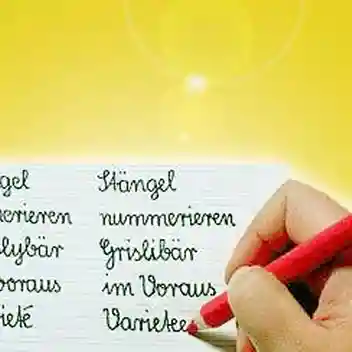 gel Stängel
merieren nummerieren
lybär Grislibär
voraus im Voraus
ieté Varietee